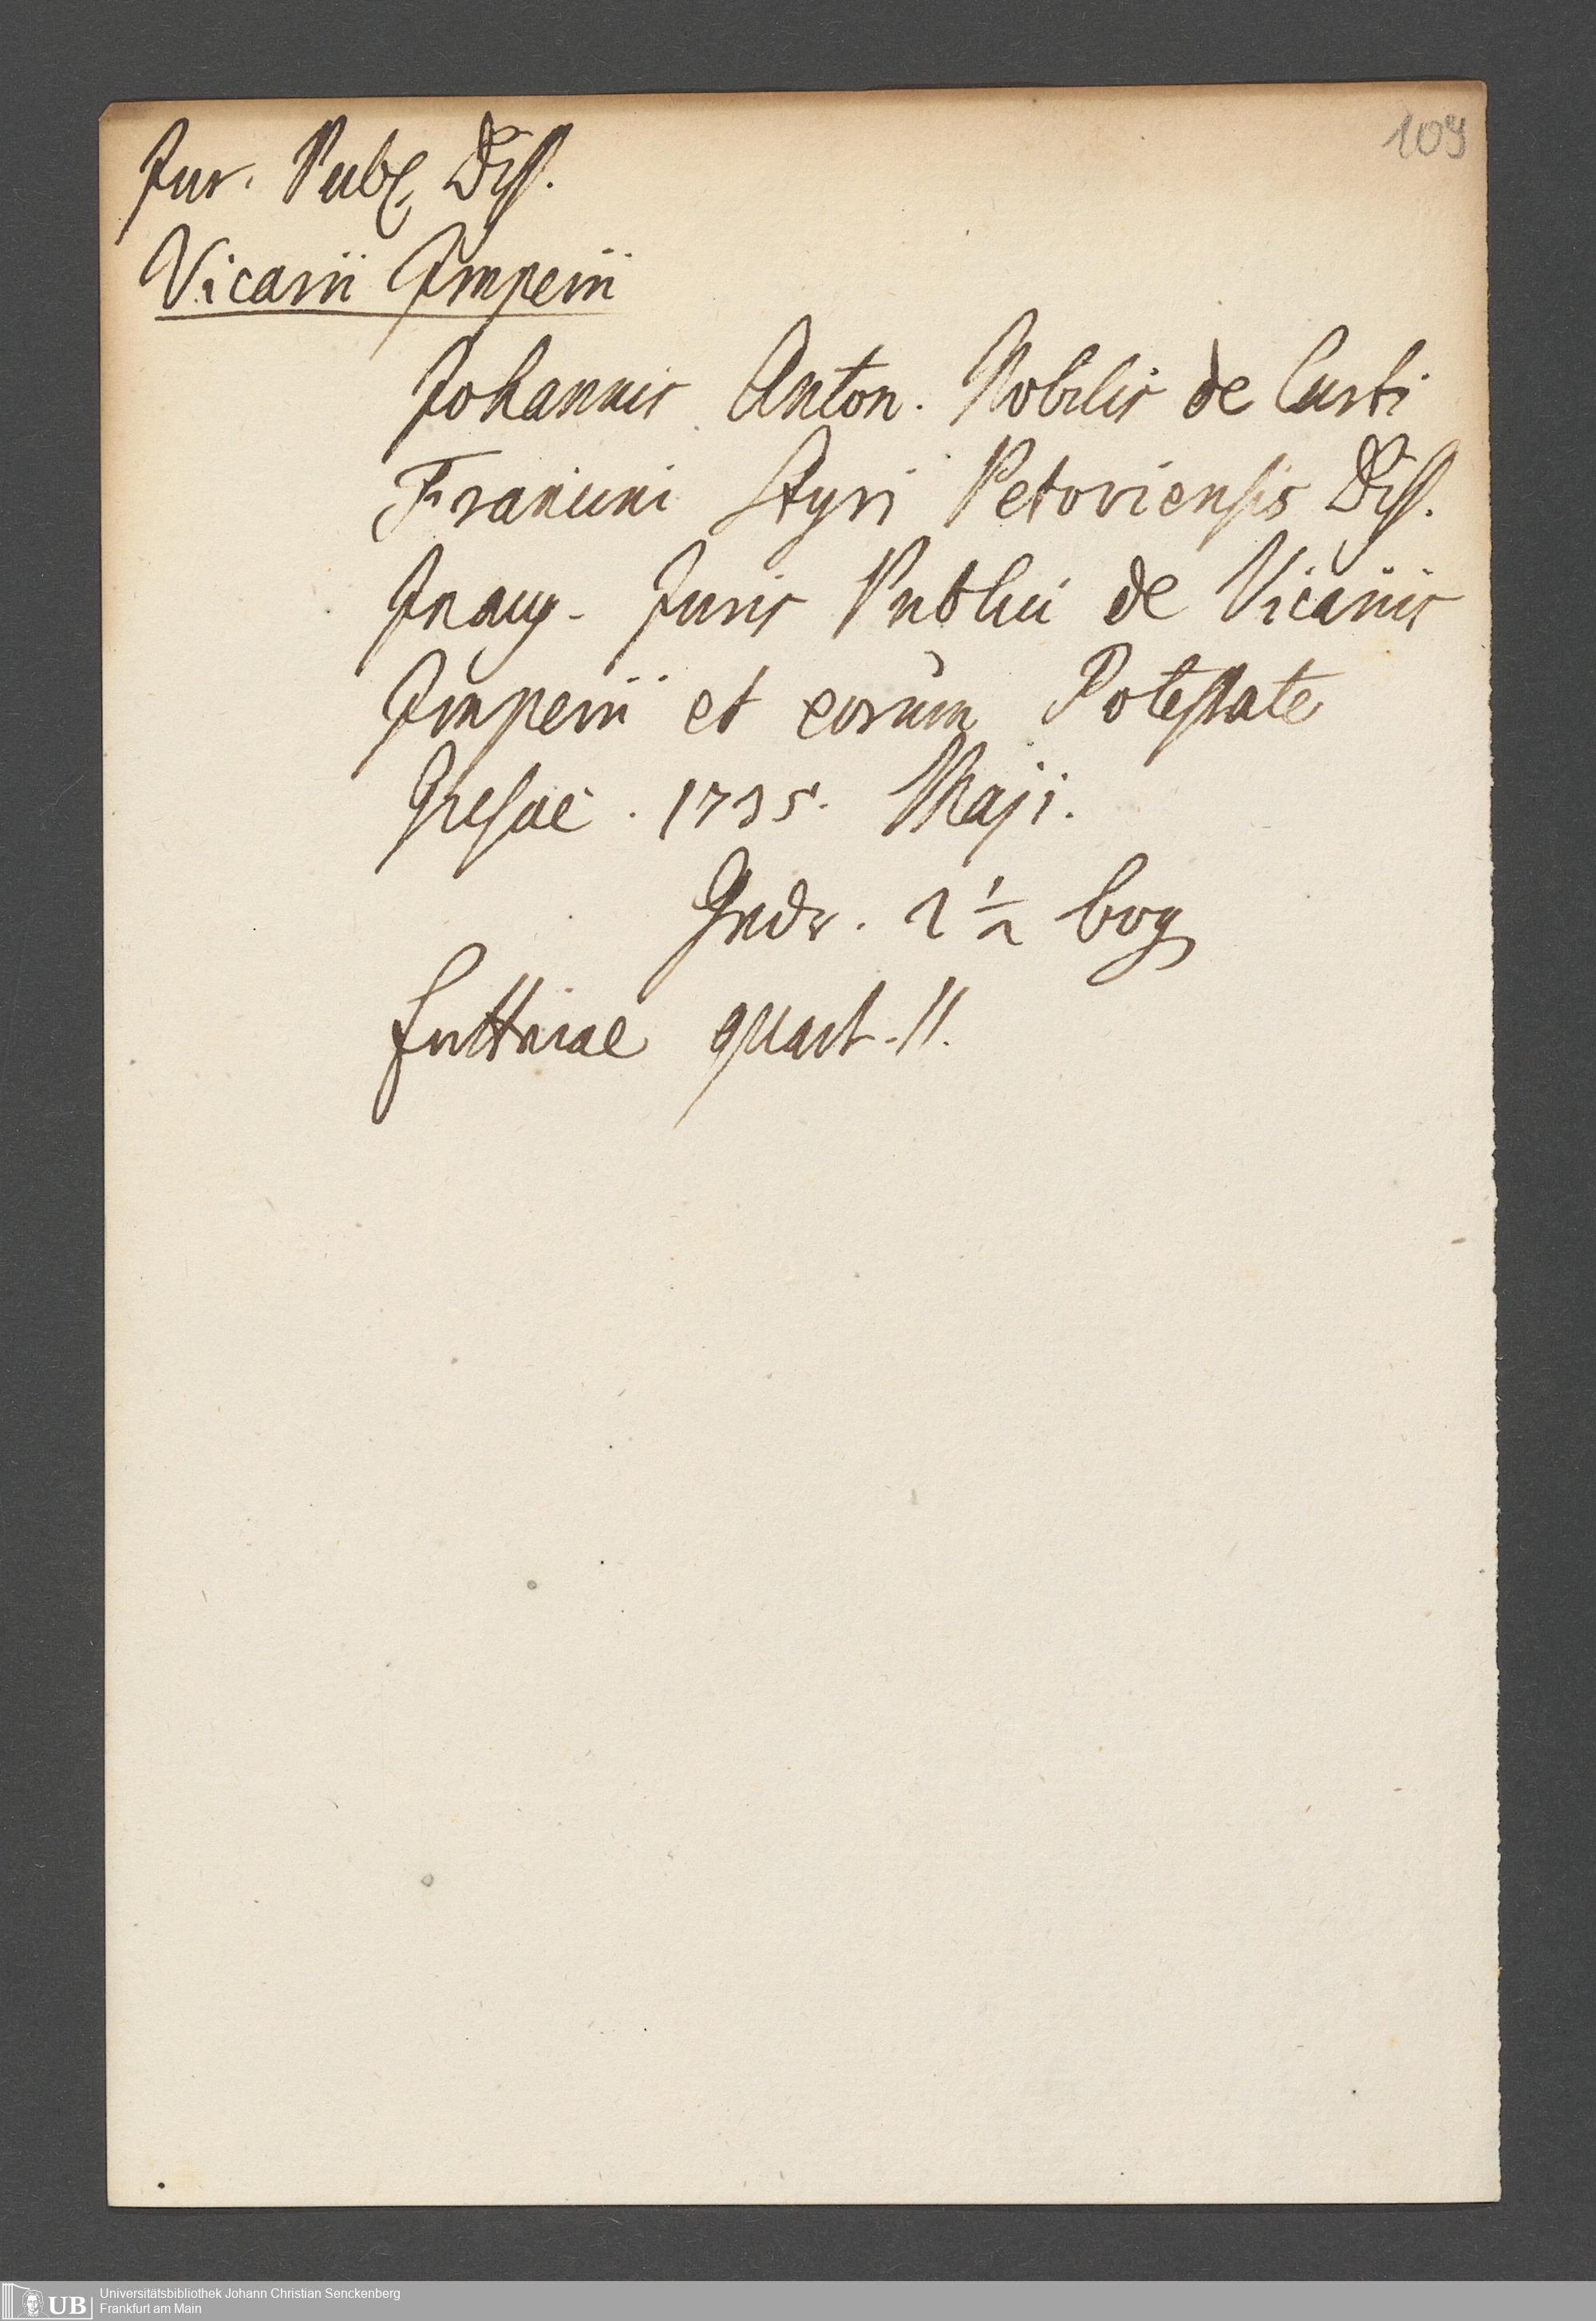 109
Jur. Publ. Diss.
Vicarii Imperii
Johannis Anton. Nobilis de Curti
Franzini Styri Petoviensis Diss.
Inaug. Juris Publici de Vicariis
Imperii et eorum Potestate
Giessae. 1735. Maji.
Gedr. 2 1/2 bog
quart. 11.
UB Universitätsbibliothek Johann Christian Senckenberg
Frankfurt am Main